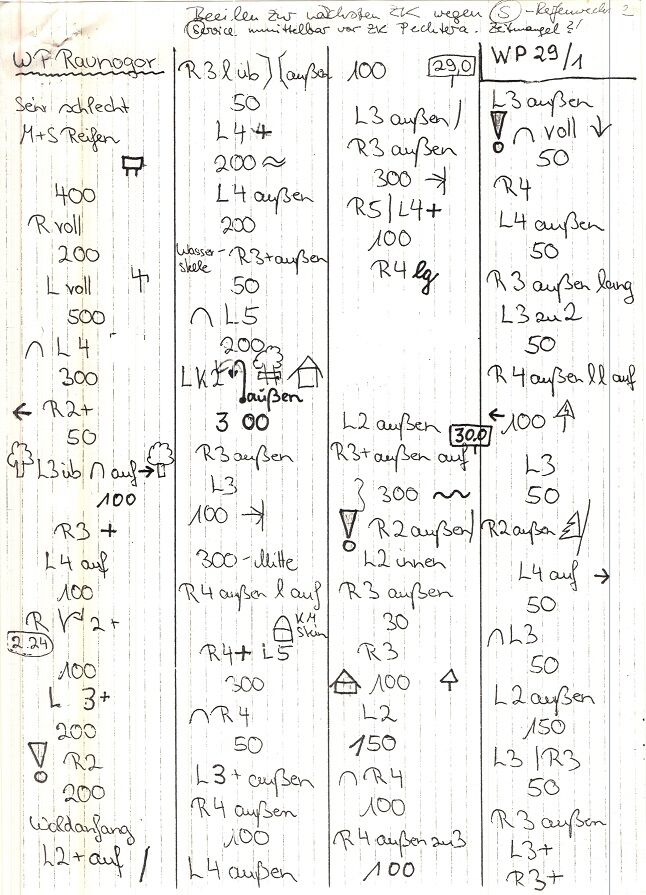 Beeilen zur nächsten ZK wegen (S) - Reifenwechs ?
(Service unmittelbar vor ZK Pechtera. Zeitmangel ?!
WP Raunogor
Sehr schlecht
M+S Reifen
400
R voll
200
L voll
500
∩ L 4
300
← R2+
50
L3 üb ∩ auf →
100
R3 +
L4 auf
100
R 2+
2.24
100
L 3+
200
! R2
200
Waldanfang
L2+ auf /
R3 l üb ) ( außen
50
L4 +
200 ≈
L4 außen
200
Wasser-
stelle R3+ außen
50
∩ L5
200
LK2
außen
3 00
R3 außen
L3
100 →|
300 - Mitte
R4 außen l auf
KM
Stein
R4+ L5
300
∩ R4
50
L3+ außen
R4 außen
100
L4 außen
100 29,0
L3 außen /
R3 außen
300 →|
R5 / L4+
100
R4 lg
L2 außen
30.0
R3+ außen auf
} 300 ~
! R2 außen /
L2 innen
R3 außen
30
R3
100
L2
150
∩ R4
100
R4 außen zu 3
100
WP 29/1
L3 außen
! ∩ voll ↓
50
R4
L4 außen
50
R3 außen lang
L3 zu 2
50
R4 außen ll auf
← 100
L3
50
R2 außen /
L4 auf →
50
∩ L3
50
L2 außen
150
L3 / R3
50
R3 außen
L3+
R3+